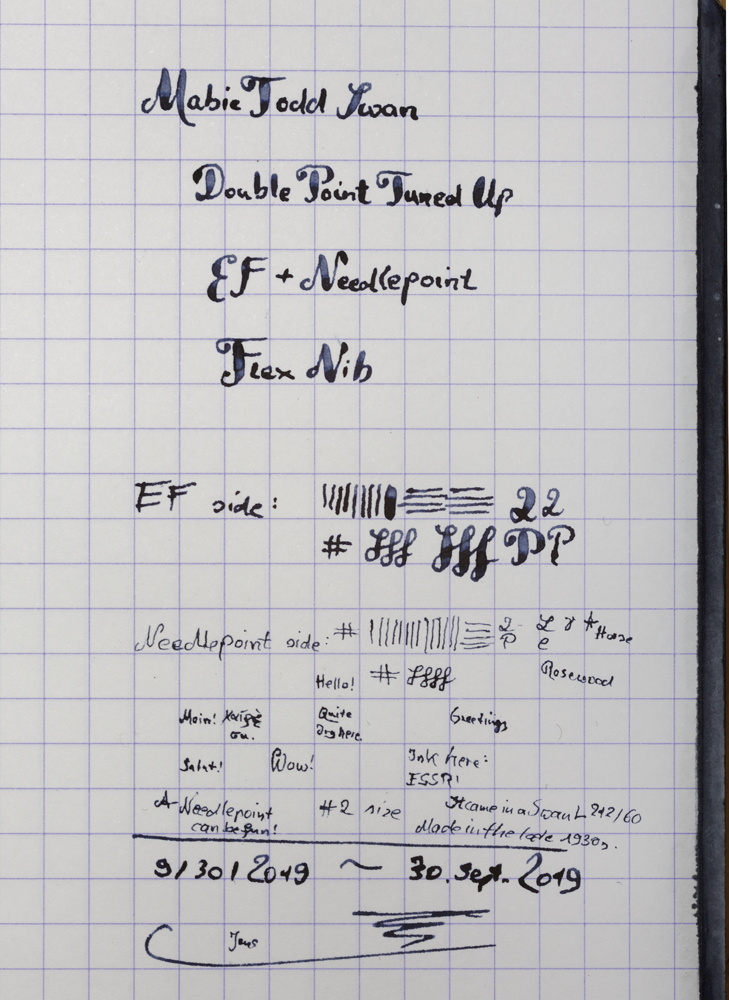 Mabie Todd Swan
Double Point Tuned Up
EF + Needlepoint
Flex Nib
EF side: 22
# fff fff PP
Needlepoint side: # 2 P L e 8 # Horse
Hello! # ffff Rosewood
Moin! Χαῖρε Quite Greetings
Dry here
Salut! Wow! Ink here:
ESSRI
A Needlepoint #2 size It came in a Swan L 242/60
can be fun! Made in the late 1930s.
9/30/2019 ~ 30. Sept. 2019
Jens